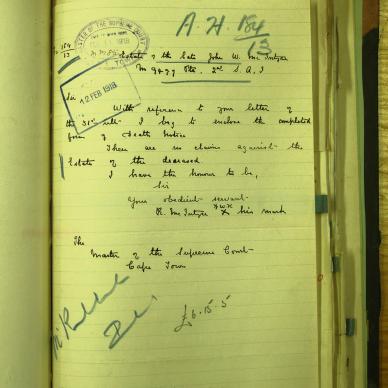 A. H. 184/13
184/13
MASTER OF THE SUPREME COURT
Estate of the late John W. McIntyre
Pte. 2nd S. A. I
12 FEB 1918
Sir
With reference to your letter of
the 31st ult. I beg to enclose the completed
form of Death Notice
There are no claims against the
Estate of the deceased.
I have the honour to be,
Sir
Your obedient servant
R. McIntyre X his mark
The
Master of the Supreme Court
Cape Town
£6-15-5